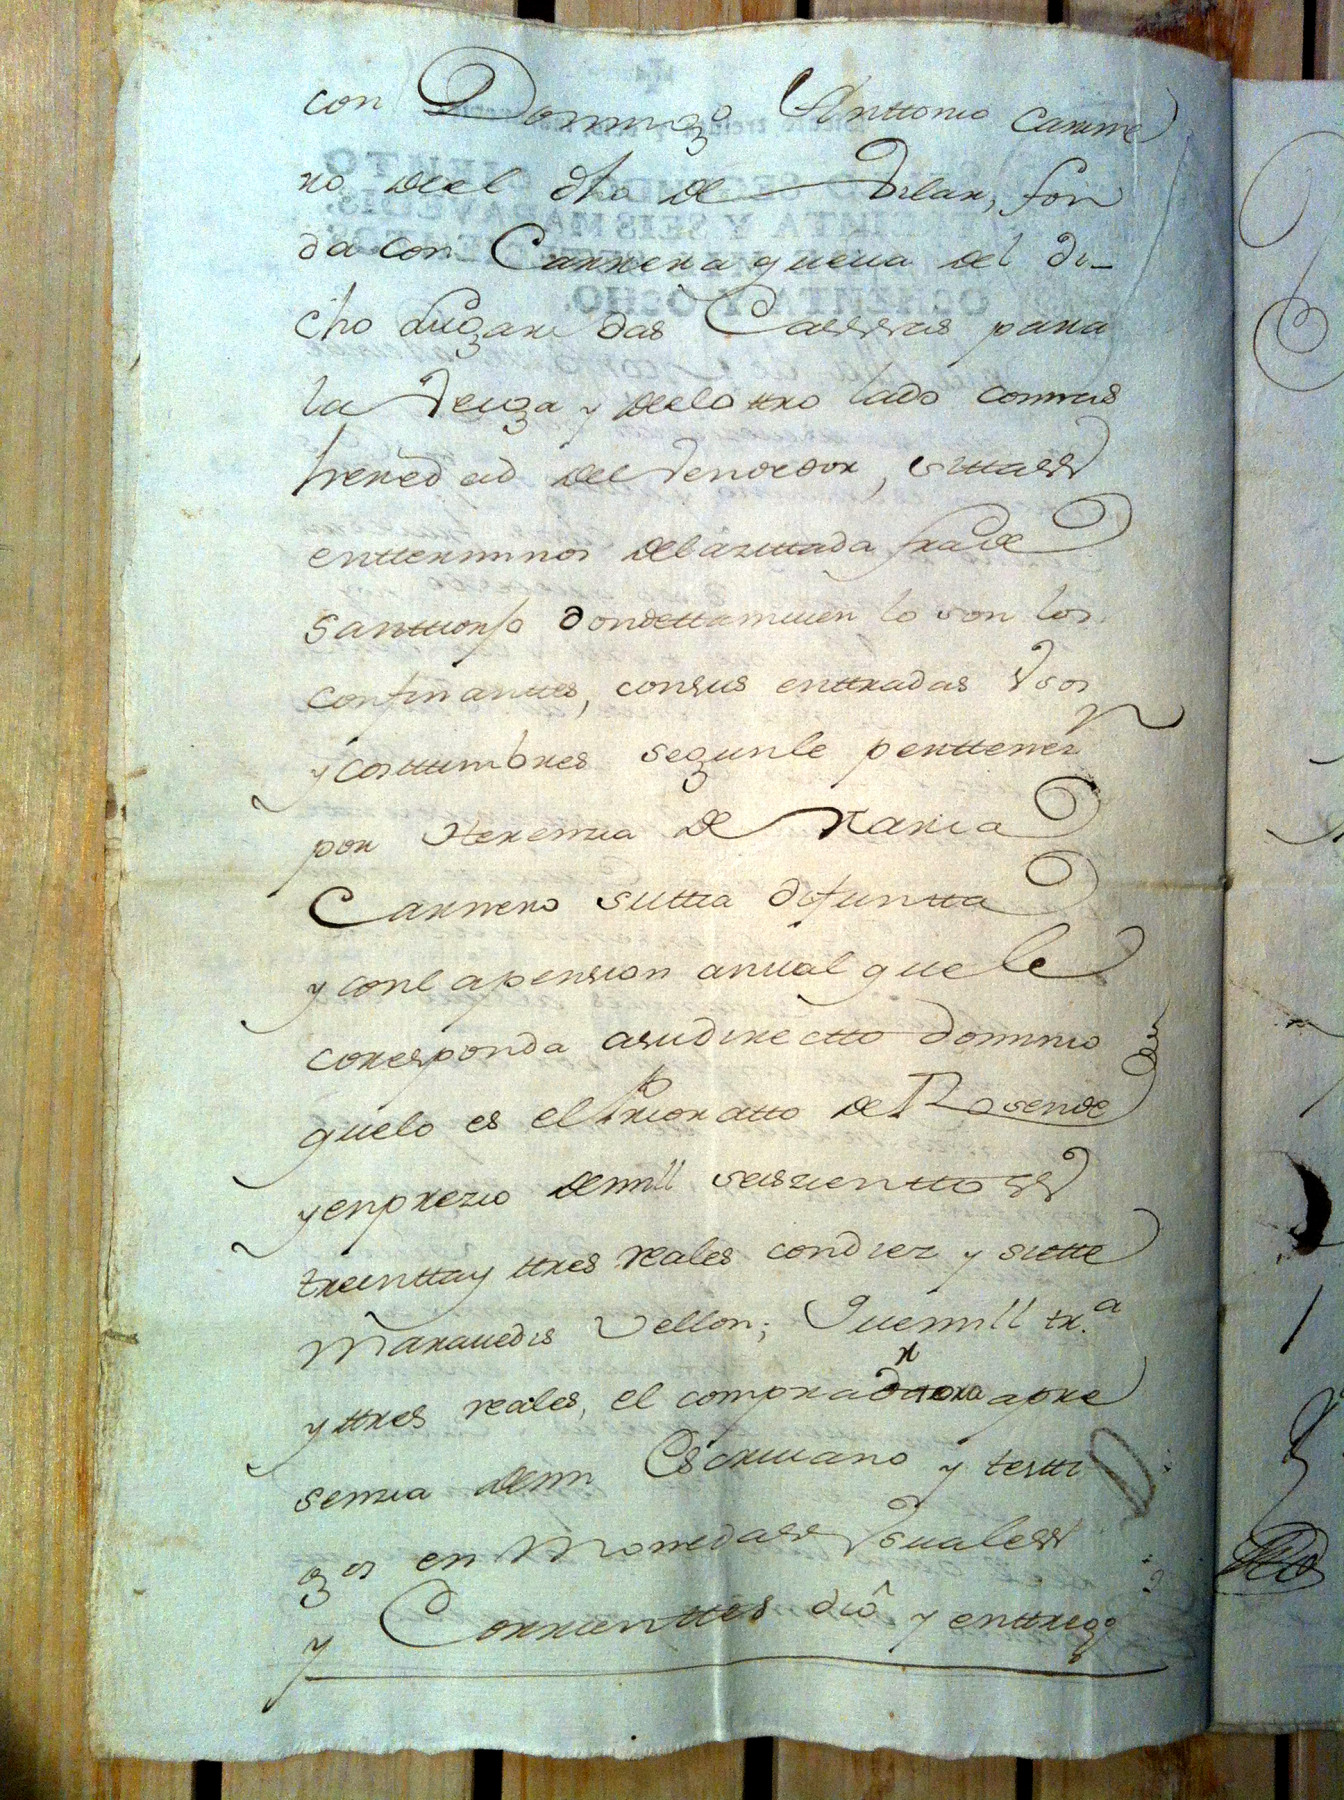 con Domingo Anttonio Carrne
ro deel dho de Vilar, fon
da con Carrera que va del di-
cho Lugar das Casas para
la Veiga y deelotro lado conmas
heredad del Vendedor, sittass
entterminos delazittada fra de
Santtiorxo dondettamvien lo son los
confinanttes, consus enttradas Vsos
y costtumbres segunle perttenez
por Herenzia de Maria
Carnero suttia difuntta
y conlapension anual que le
coresponda asudirectto dominio
quelo es el Prioratto de Rosende
y enprezio demill seiszienttoss
treinttay ttres reales condiez y siette
Maravedis Vellon; Quemill tr.ª
y ttres reales, el comprador apre
senzia demi Escrivano y testti
gos en Monedass Vsualess
y Corrienttes dió y enttrego